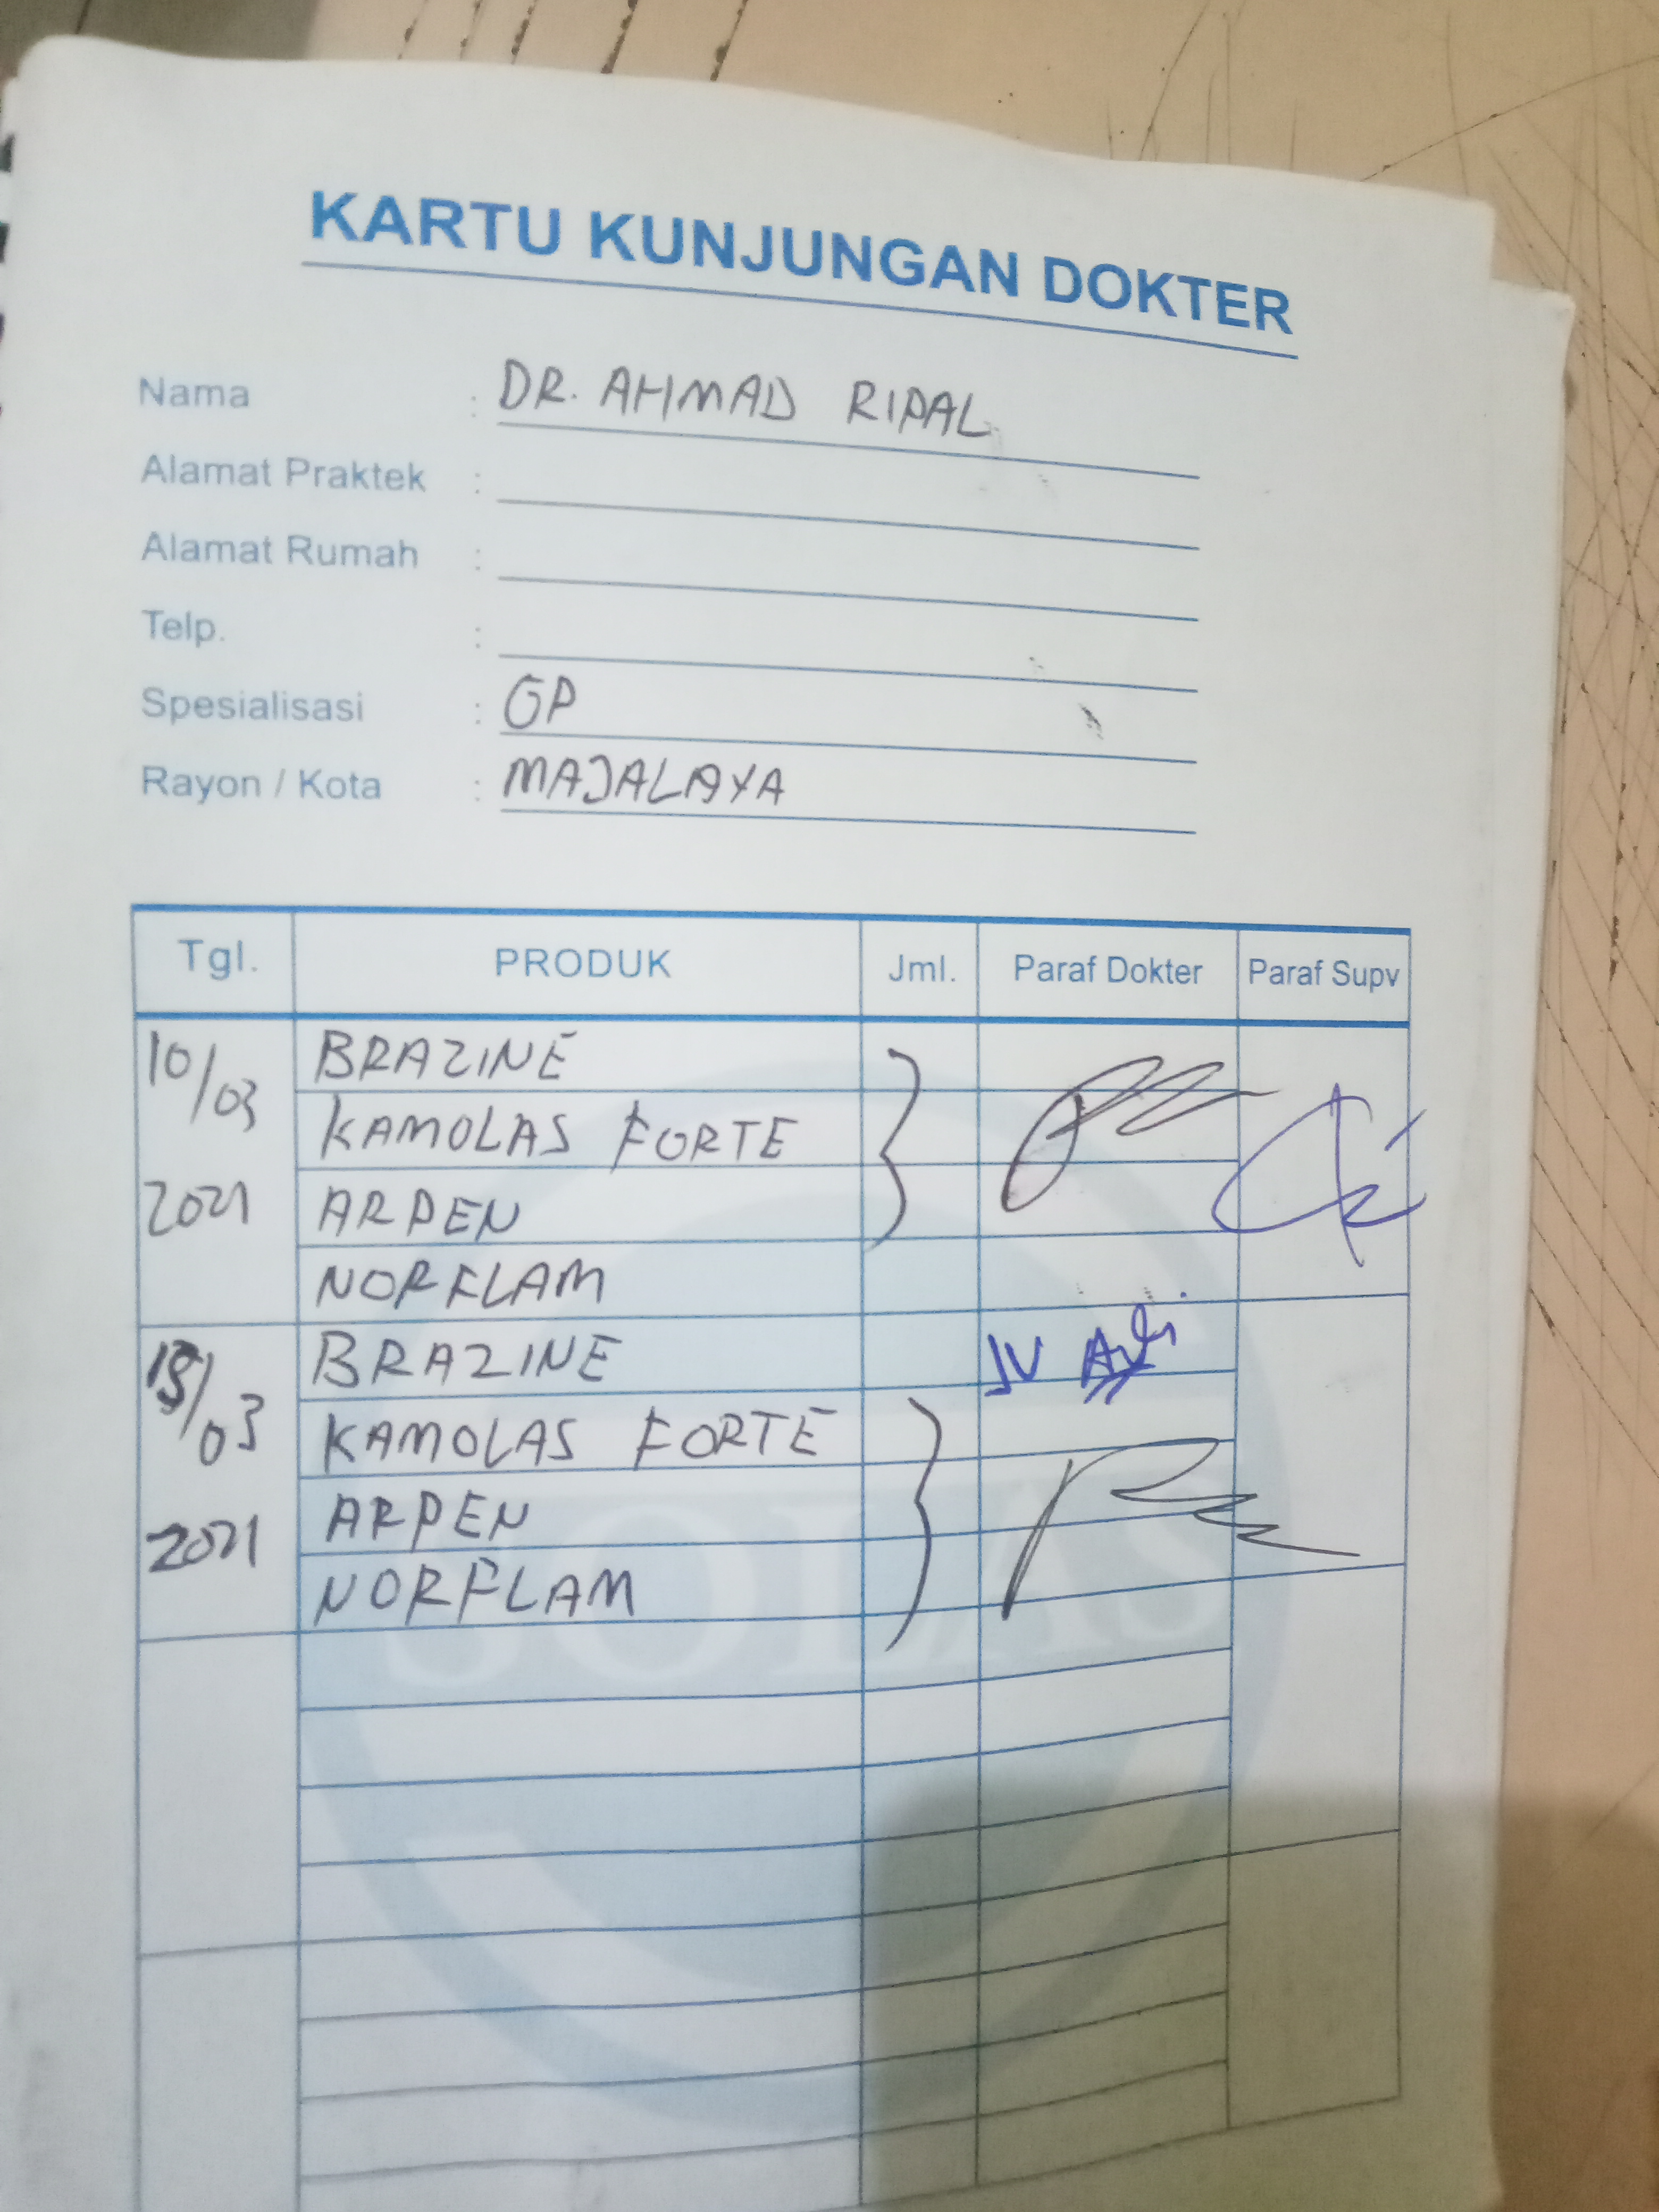 KARTU KUNJUNGAN DOKTER
Nama : DR. AHMAD RIPAL
Alamat Praktek :
Alamat Rumah :
Telp. :
Spesialisasi : GP
Rayon / Kota : MAJALAYA
Tgl. PRODUK Jml. Paraf Dokter Paraf Supv
10/03 BRAZINE
KAMOLAS FORTE
2021 ARPEN
NORFLAM
/03 BRAZINE
KAMOLAS FORTE
2021 ARPEN
NORFLAM
SOLAS